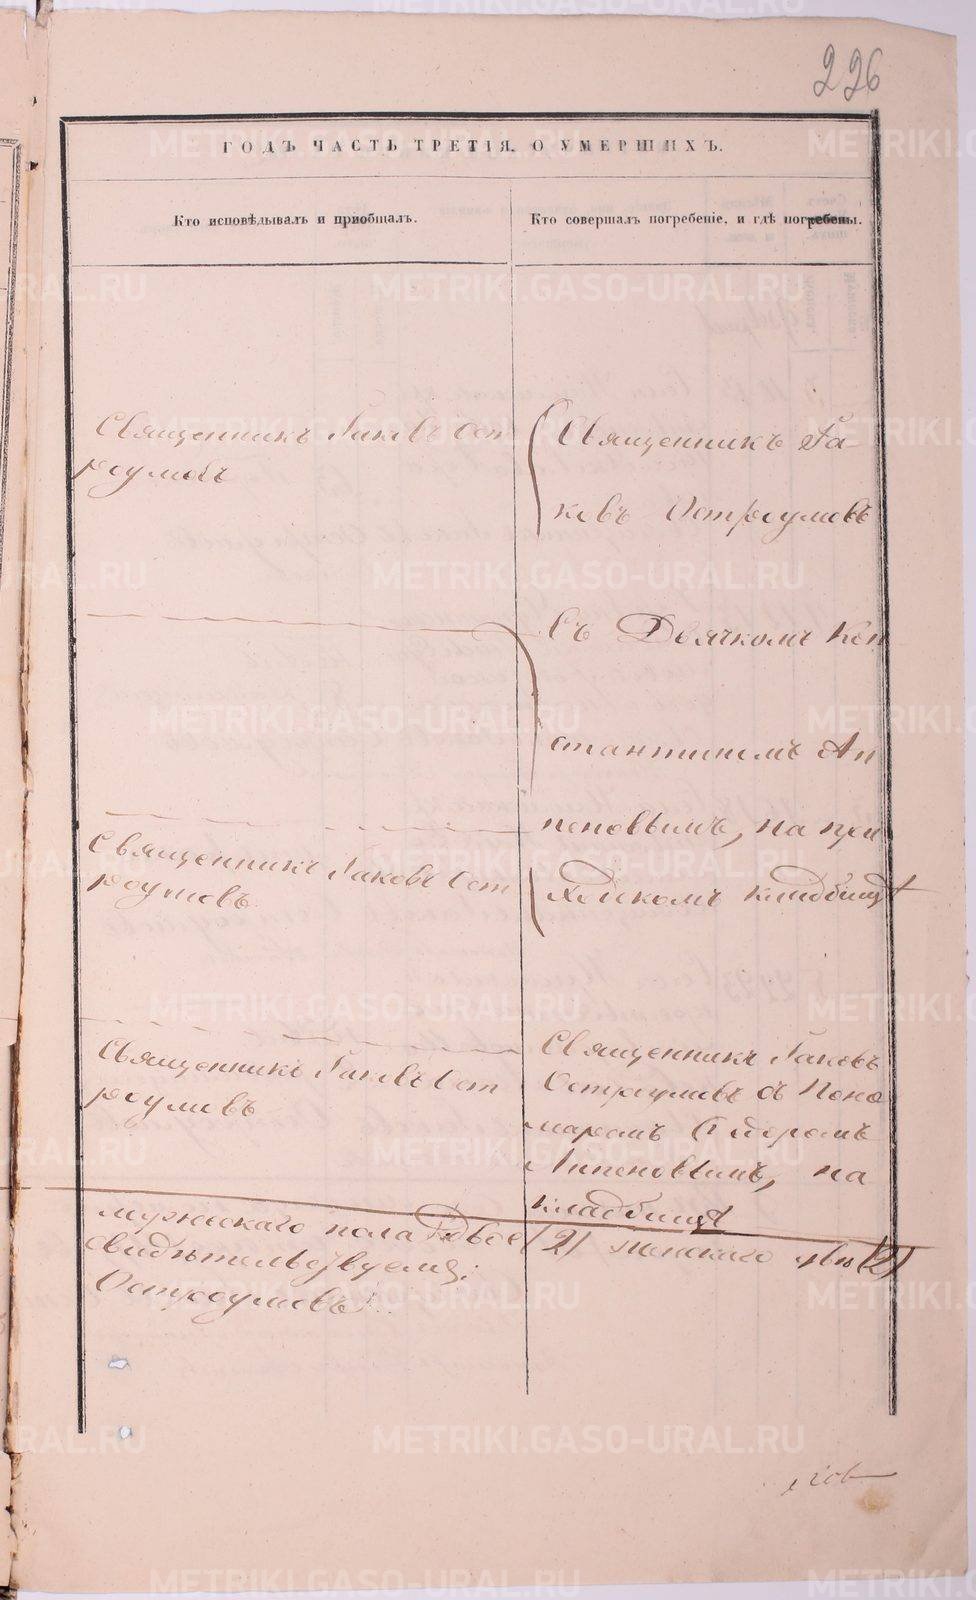 226
ГОДЪ ЧАСТЬ ТРЕТІЯ. О УМЕРШИХЪ.
Кто исповѣдывалъ и пріобщалъ.
Кто совершалъ погребеніе, и гдѣ погребены.
Священникъ Іаковъ Ост
роумовъ
Священникъ Іа
ковъ Остроумовъ
съ Дьячкомъ Кон
стантиномъ Ап
пеновымъ, на при
ходскомъ кладбищѣ
Священникъ Іаковъ Ост
роумовъ
Священникъ Іаковъ Ост
роумовъ
Священникъ Іаковъ
Остроумовъ съ Поно
маремъ Ѳедоромъ
на
кладбищѣ
мужескаго пола двое (2) женскаго (2)
Остроумовъ
METRIKI.GASO-URAL.RU